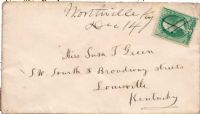 Worthville Ky
Dec 14
Miss Susa T Green
S.W. Fourth & Broadway streets
Louisville
Kentucky